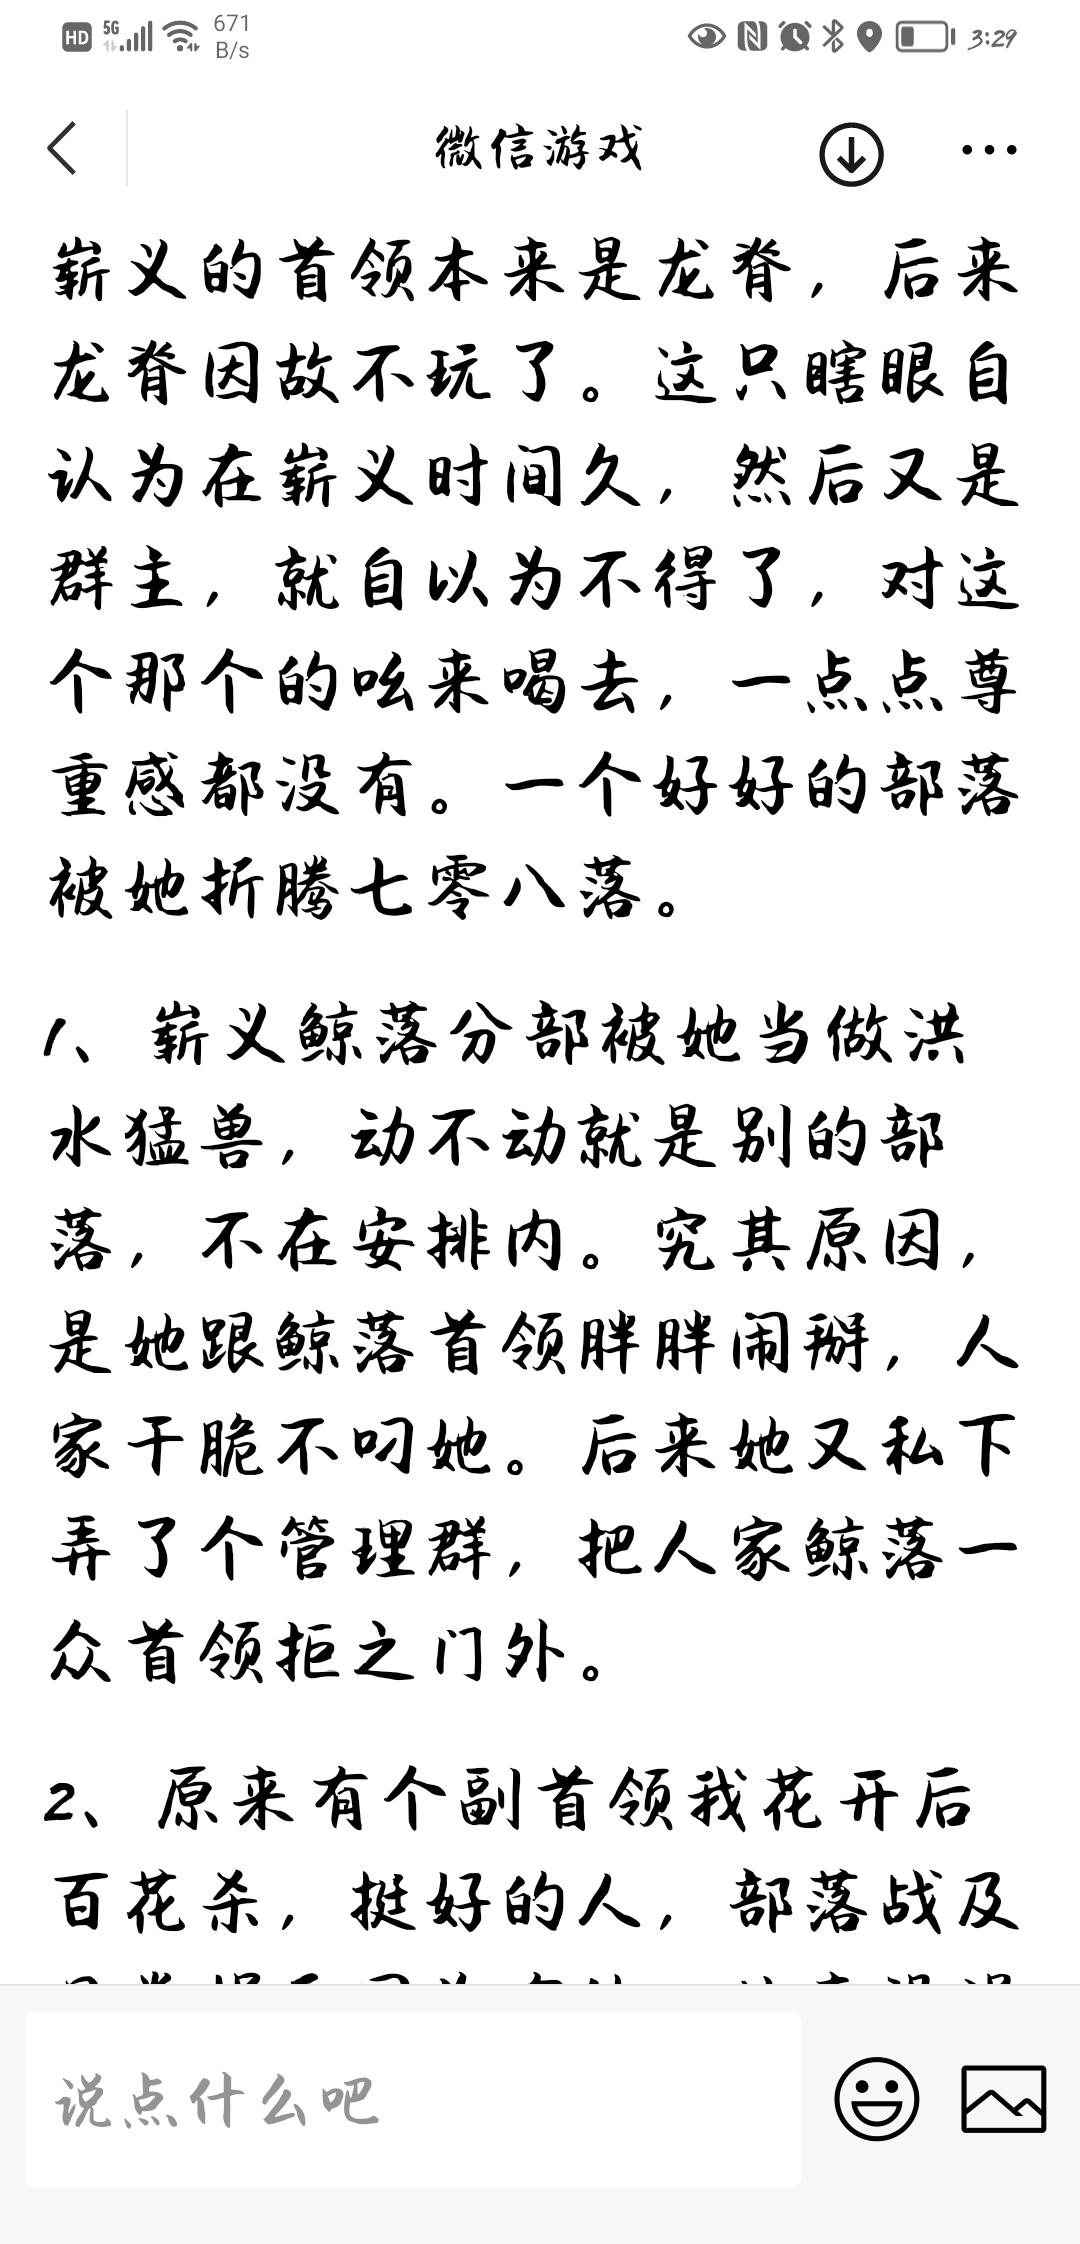 HD 5G 671 B/s 3:29
微信游戏
崭义的首领本来是龙脊，后来
龙脊因故不玩了。这只瞎眼自
认为在崭义时间久，然后又是
群主，就自以为不得了，对这
个那个的吆来喝去，一点点尊
重感都没有。一个好好的部落
被她折腾七零八落。
1、崭义鲸落分部被她当做洪
水猛兽，动不动就是别的部
落，不在安排内。究其原因，
是她跟鲸落首领胖胖闹掰，人
家干脆不叼她。后来她又私下
弄了个管理群，把人家鲸落一
众首领拒之门外。
2、原来有个副首领我花开后
百花杀，挺好的人，部落战及
说点什么吧